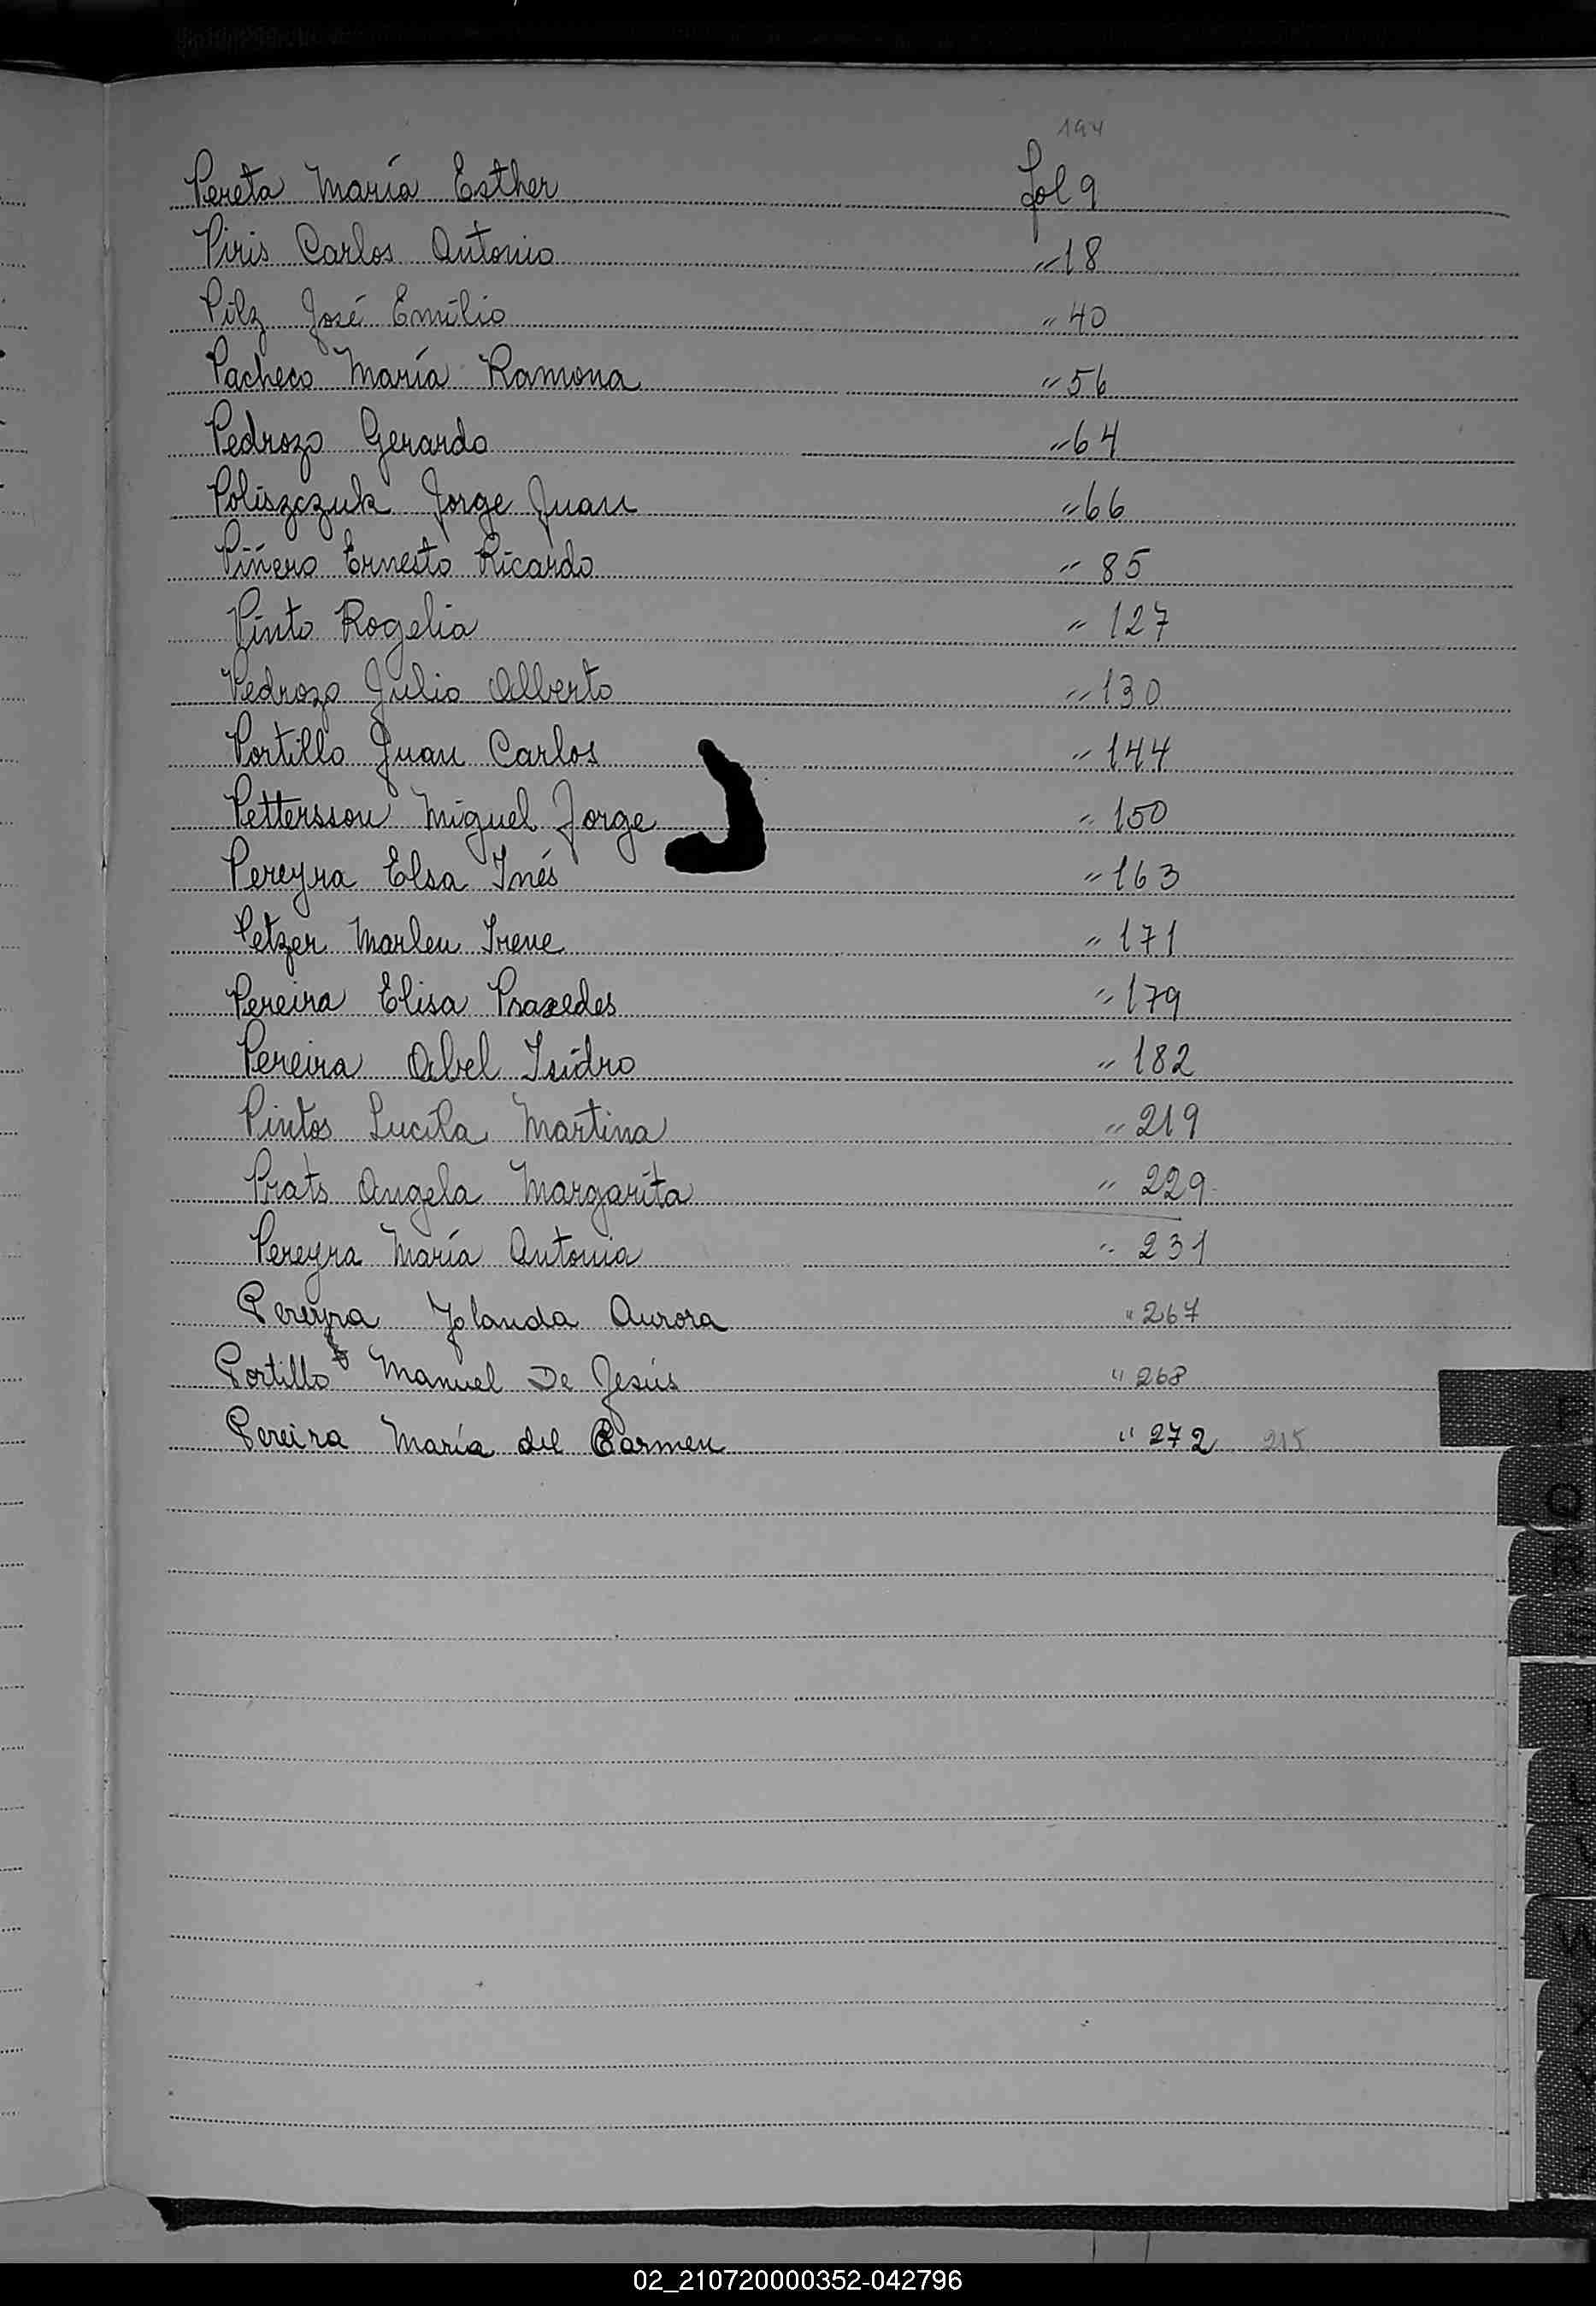 194
Pereta María Esther fol 9
Piris Carlos Antonio " 18
Pilz José Emilio " 40
Pacheco María Ramona " 56
Pedrozo Gerardo " 64
Poliszczuk Jorge Juan " 66
Piñero Ernesto Ricardo " 85
Pinto Rogelia " 127
Pedrozo Julio Alberto " 130
Portillo Juan Carlos " 144
Pettersson Miguel Jorge " 150
Pereyra Elsa Inés " 163
Petzer Marlen Irene " 171
Pereira Elisa Praxedes " 179
Pereira Abel Isidro " 182
Pintos Lucila Martina " 219
Prats Angela Margarita " 229
Pereyra María Antonia " 231
Pereyra Yolanda Aurora " 267
Portillo Manuel De Jesús " 268
Pereira María del Carmen " 272 215
P
Q
R
S
T
U
V
W
X
Y
02_210720000352-042796